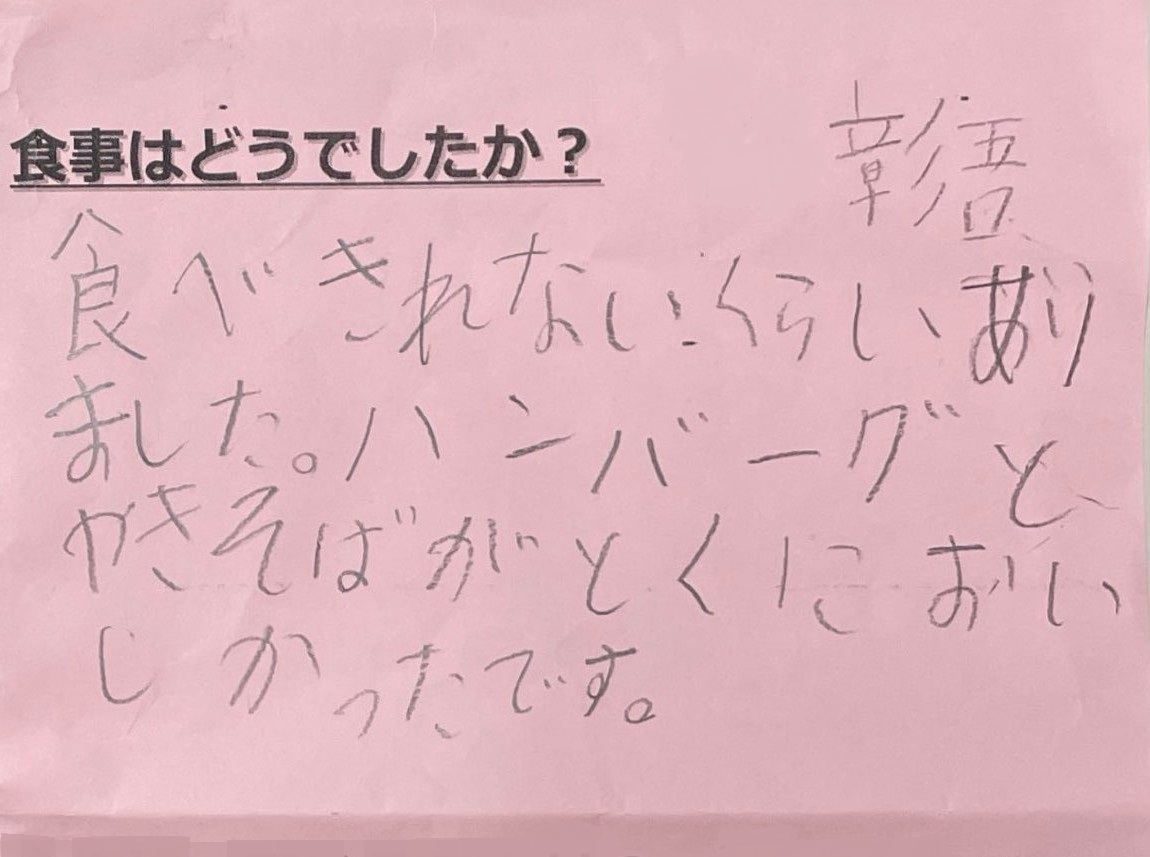 食事はどうでしたか？
彰吾
食べきれないくらいあり
ました。ハンバーグと
やきそばがとくにおい
しかったです。